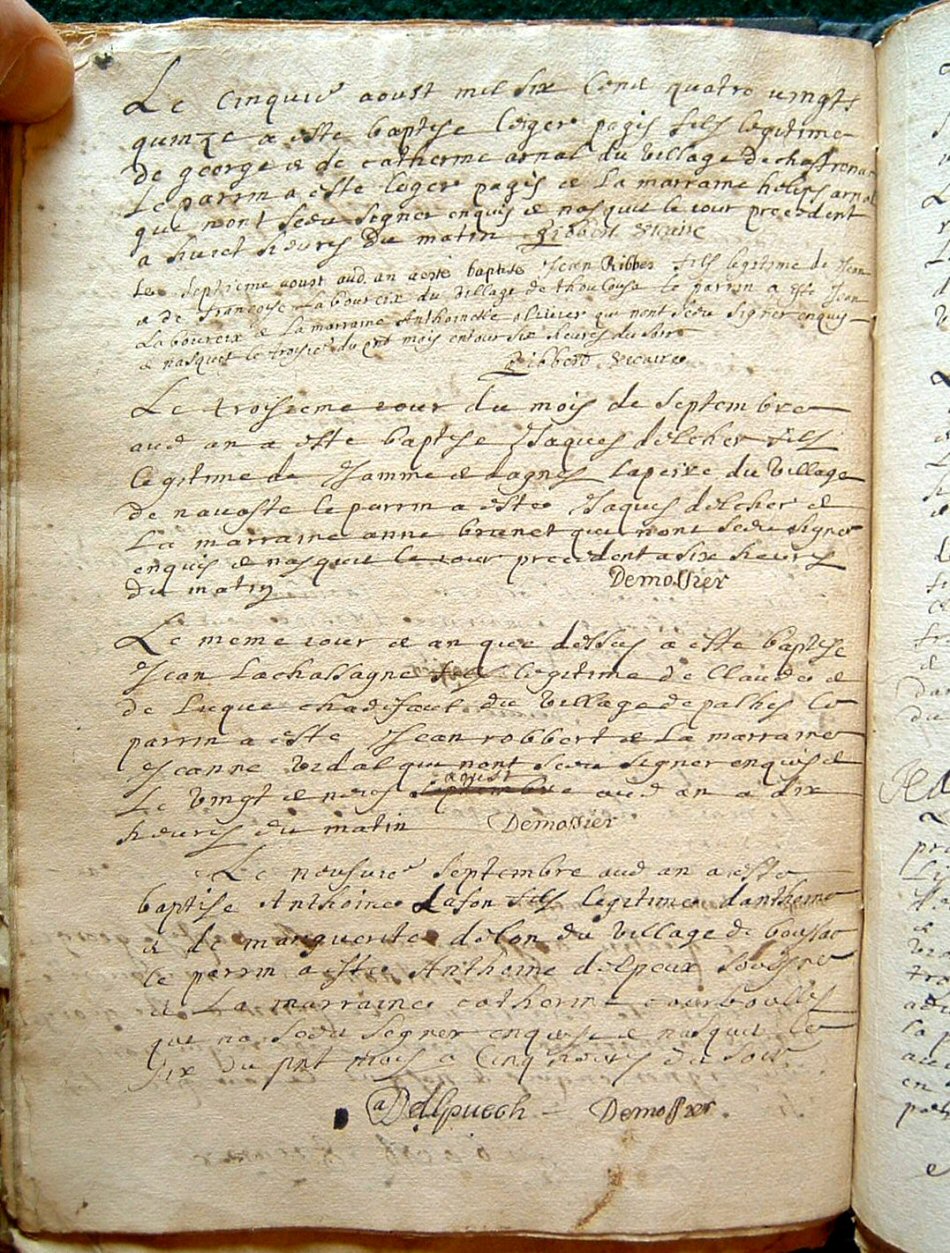 Le cinquie aoust mil six cens quatre vingts
quinze a este baptise loger pagis fils legitime
de george et de catherine arnal du village de
le parrin a este loger pagis et la marraine helips arnal
qui nont sceu signer enquis et nasquit le iour precedent
a huict heures du matin Ribbert vicaire
Le septieme aoust aud an a esté baptisé Jean Ribbes fils legitime de Jean
et de francoise Laboureix du village de thoulouse le parrin a esté Jean
Laboureix et La marraine Anthoinette olivier qui nont sceu signer enquis
et nasquit le troisie du pnt mois entour six heures du soir
Ribbert vicaire
Le troisieme iour du mois de septembre
aud an a este baptise Jaques delcher fils
legitime de Jamme et dagnes lapeire du village
de navaste le parrin a este Jaques delcher et
La marraine anne brunet qui nont sceu signer
enquis et nasquit le iour precedent a six heures
du matin Demossier
Le meme iour et an que dessus a este baptise
Jean Lachassagne fils legitime de Claude et
de Luque du village de palhes le
parrin a este Jean robbert et La marraine
Jeanne vidal qui nont sceu signer enquis et
aoust
Le vingt et neuf septembre aud an a dix
heures du matin Demossier
Le neufvie septembre aud an a este
baptise Anthoine Lafon fils legitime danthoine
et de marguerite delon du village de
le parrin a este Anthoine delpeux
et La marraine catherine
qui na sceu signer enquise et nasquit le
six du pnt mois a cinq heures du soir
a Delpuech Demossier